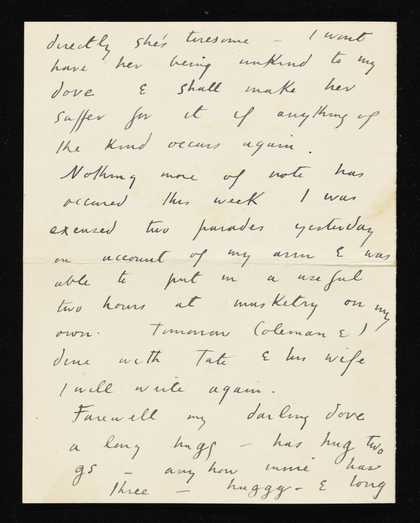 directly she's tiresome – I wont
have her being unkind to my
dove & shall make her
suffer for it if anything of
the kind occurs again.
Nothing more of note has
occured this week I was
excused two parades yesterday
on account of my arm & was
able to put in a useful
two hours at musketry on my
own. Tomorrow Coleman & I
dine with Tate & his wife
I will write again.
Farewell my darling dove
a long hugg – has hug two
gs – any how mine has
three – huggg – & long